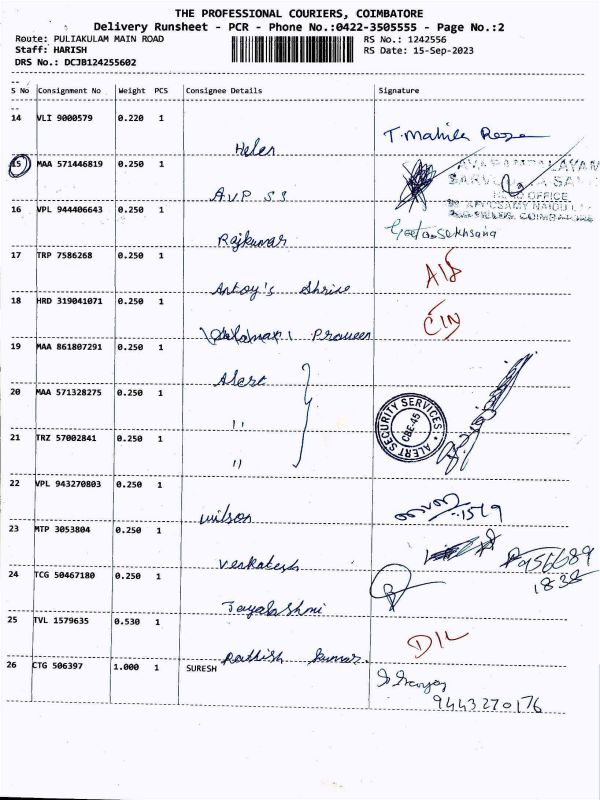 THE PROFESSIONAL COURIERS, COIMBATORE
Delivery Runsheet - PCR - Phone No.:0422-3505555 - Page No.:2
Route: PULIAKULAM MAIN ROAD RS No.: 1242556
Staff: HARISH RS Date: 15-Sep-2023
DRS No.: DCJB124255602
S No Consignment No Weight PCS Consignee Details Signature
14 VLI 9000579 0.220 1 Helen T. Mahila
15 MAA 571446819 0.250 1 A.V.P SS
OFFICE
COIMBATORE
16 VPL 944406643 0.250 1 Rajkumar
17 TRP 7586268 0.250 1 Antoy's Shrine
18 HRD 319041071 0.250 1 Praveen CIN
19 MAA 861807291 0.250 1 Alert
20 MAA 571328275 0.250 1 "
ALERT SECURITY SERVICES
CBE-45
21 TRZ 57002841 0.250 1 "
22 VPL 943270803 0.250 1 wilson 1519
23 MTP 3053804 0.250 1 Venkatesh
24 TCG 50467180 0.250 1 Jayalashmi
25 TVL 1579635 0.530 1 Rathish kumar. DIL
26 CTG 506397 1.000 1 SURESH
9443270176